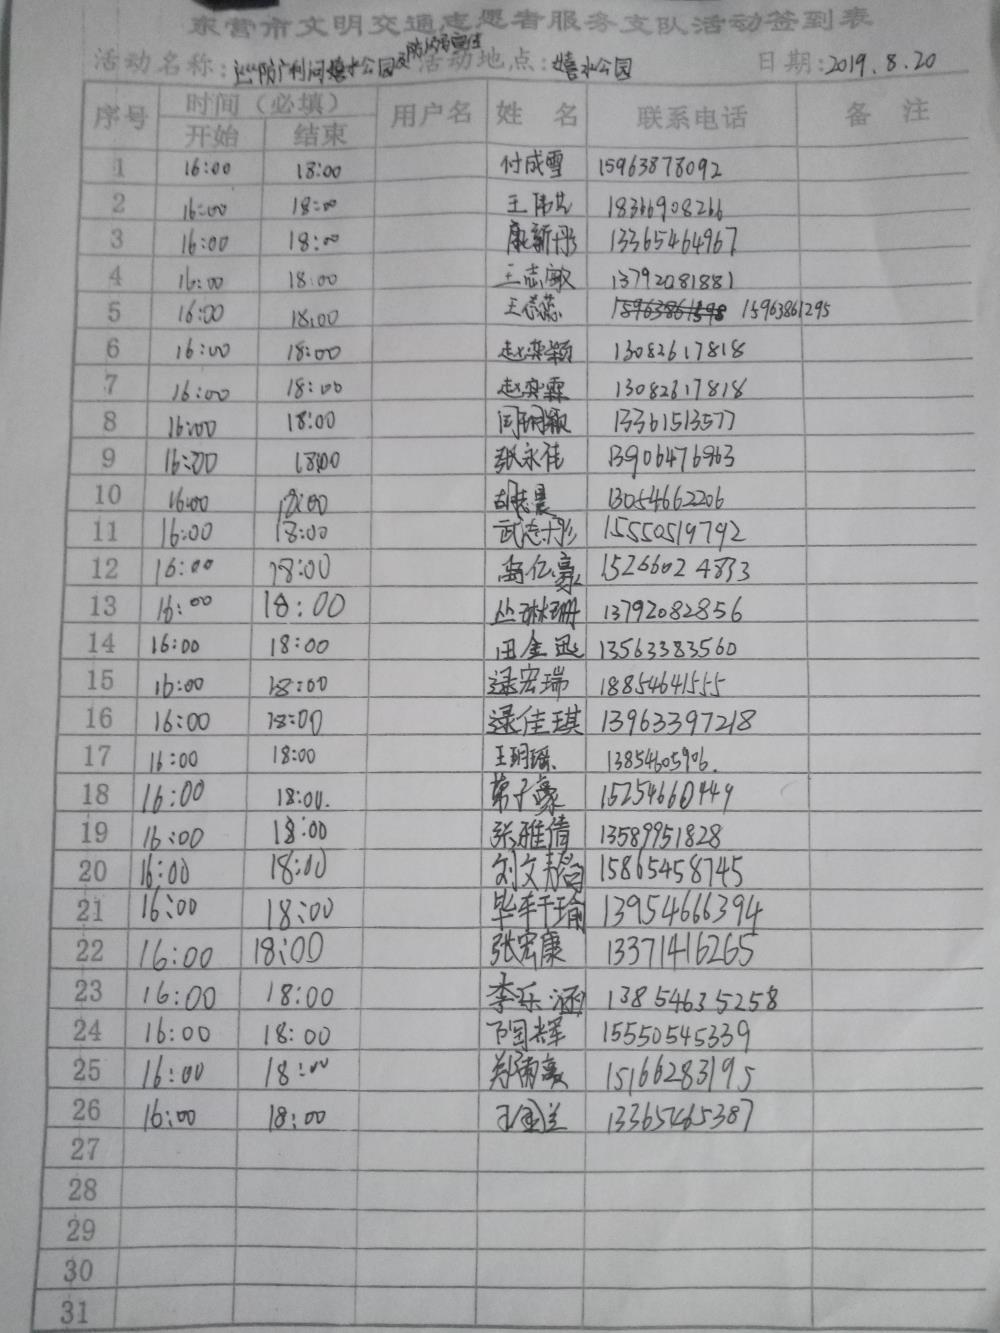 东营市文明交通志愿者服务支队活动签到表
活动名称: 活动地点: 嬉水公园 日期: 2019.8.20
序号 时间（必填） 用户名 姓 名 联系电话 备 注
开始 结束
1 16:00 18:00 付成雪 15963878092
2 16:00 18:00 王伟艺 18366908266
3 16:00 18:00 康新彤 13365464967
4 16:00 18:00 王志敏 13792081881
5 16:00 18:00 王志蕊 15963861295
6 16:00 18:00 赵奕颖 13082617818
7 16:00 18:00 赵奕霖 13082617818
8 16:00 18:00 闫玥颖 13361513577
9 16:00 18:00 张永佳 13906476963
10 16:00 18:00 胡志晨 13054662206
11 16:00 18:00 武志彤 15550519792
12 16:00 18:00 15266024833
13 16:00 18:00 丛琳珊 13792082856
14 16:00 18:00 田金迅 13563383560
15 16:00 18:00 逯宏瑞 18854641555
16 16:00 18:00 逯佳琪 13963397218
17 16:00 18:00 王玥瑶 13854605906.
18 16:00 18:00. 15254660449
19 16:00 18:00 张雅倩 13589951828
20 16:00 18:00 刘文韬 15865458745
21 16:00 18:00 毕轩瑜 13954666394
22 16:00 18:00 张宏康 13371416265
23 16:00 18:00 李乐涵 13854635258
24 16:00 18:00 15550545339
25 16:00 18:00 15166283195
26 16:00 18:00 13365465387
27
28
29
30
31